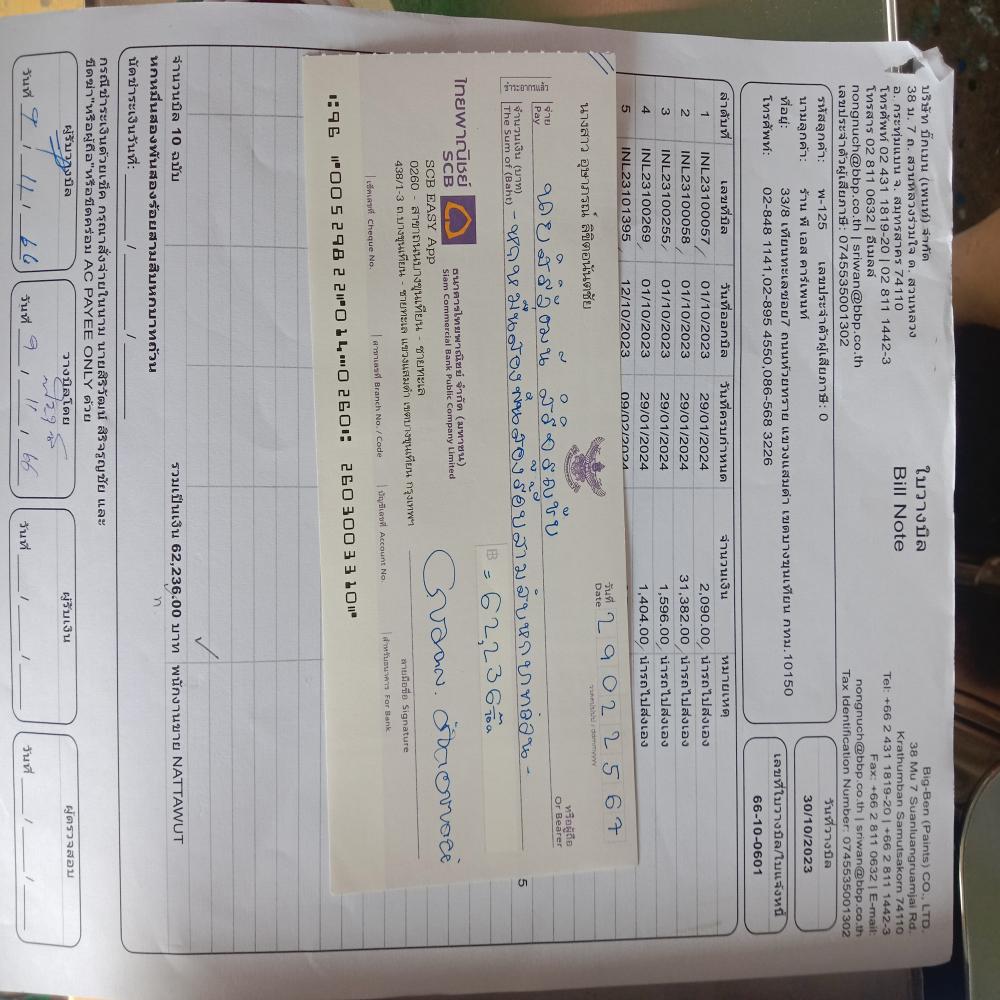 บริษัท บิ๊กเบน (เพนท์) จำกัด
38 ม. 7 ถ. สวนหลวงร่วมใจ ต. สวนหลวง
อ. กระทุ่มแบน จ. สมุทรสาคร 74110
โทรศัพท์ 02 431 1819-20 | 02 811 1442-3
โทรสาร 02 811 0632 | อีเมลล์
nongnuch@bbp.co.th | sriwan@bbp.co.th
เลขประจำตัวผู้เสียภาษี: 0745535001302
ใบวางบิล
Bill Note
Big-Ben (Paints) CO., LTD.
38 Mu 7 Suanluangruamjai Rd.
Krathumban Samutsakorn 74110
Tel: +66 2 431 1819-20 | +66 2 811 1442-3
Fax: +66 2 811 0632 | E-mail:
nongnuch@bbp.co.th | sriwan@bbp.co.th
Tax Identification Number: 0745535001302
รหัสลูกค้า: พ-125 เลขประจำตัวผู้เสียภาษี: 0
นามลูกค้า: ร้าน พี เอส คาร์เพนท์
ที่อยู่: 33/8 เทียนทะเลซอย7 ถนนห้วยทราย แขวงแสมดำ เขตบางขุนเทียน กทม.10150
โทรศัพท์: 02-848 1141,02-895 4550,086-568 3226
วันที่วางบิล
30/10/2023
เลขที่ใบวางบิล/ใบแจ้งหนี้
66-10-0601
ลำดับที่ เลขที่บิล วันที่ออกบิล วันที่ครบกำหนด จำนวนเงิน หมายเหตุ
1 INL23100057 01/10/2023 29/01/2024 2,090.00 นำรถไปส่งเอง
2 INL23100058 01/10/2023 29/01/2024 31,382.00 นำรถไปส่งเอง
3 INL23100255 01/10/2023 29/01/2024 1,596.00 นำรถไปส่งเอง
4 INL23100269 01/10/2023 29/01/2024 1,404.00 นำรถไปส่งเอง
5 INL23101395 12/10/2023 09/02/2024
นางสาว อุษาภรณ์ ลิขิตอนันตชัย
วันที่ Date 29022567
ชำระอากรแล้ว
จ่าย Pay นายสิริวัฒน์ สิริจรูญชัย
หรือผู้ถือ Or Bearer
จำนวนเงิน (บาท) The Sum of (Baht) -หกหมื่นสองพันสองร้อยสามสิบหกบาทถ้วน-
฿ =62,236
ไทยพาณิชย์
SCB
ธนาคารไทยพาณิชย์ จำกัด (มหาชน)
Siam Commercial Bank Public Company Limited
SCB EASY App
0260 - สาขาถนนบางขุนเทียน - ชายทะเล
438/1-3 ถ.บางขุนเทียน - ชายทะเล แขวงแสมดำ เขตบางขุนเทียน กรุงเทพฯ
ลายมือชื่อ Signature
เช็คเลขที่ Cheque No. สาขาเลขที่ Branch No. / Code บัญชีเลขที่ Account No. สำหรับธนาคาร For Bank
5
จำนวนบิล 10 ฉบับ รวมเป็นเงิน 62,236.00 บาท พนักงานขาย NATTAWUT
หกหมื่นสองพันสองร้อยสามสิบหกบาทถ้วน
นัดชำระเงินวันที่: ____/____/____
กรณีชำระเงินด้วยเช็ค กรุณาสั่งจ่ายในนาม นายสิริวัฒน์ สิริจรูญชัย และ
ขีดฆ่า"หรือผู้ถือ"หรือขีดคร่อม AC PAYEE ONLY ด้วย
ผู้รับวางบิล วางบิลโดย ผู้รับเงิน ผู้ตรวจสอบ
วันที่ 9 / 11 / 66 วันที่ 9 / 11 / 66 วันที่ ___/___/___ วันที่ ___/___/___